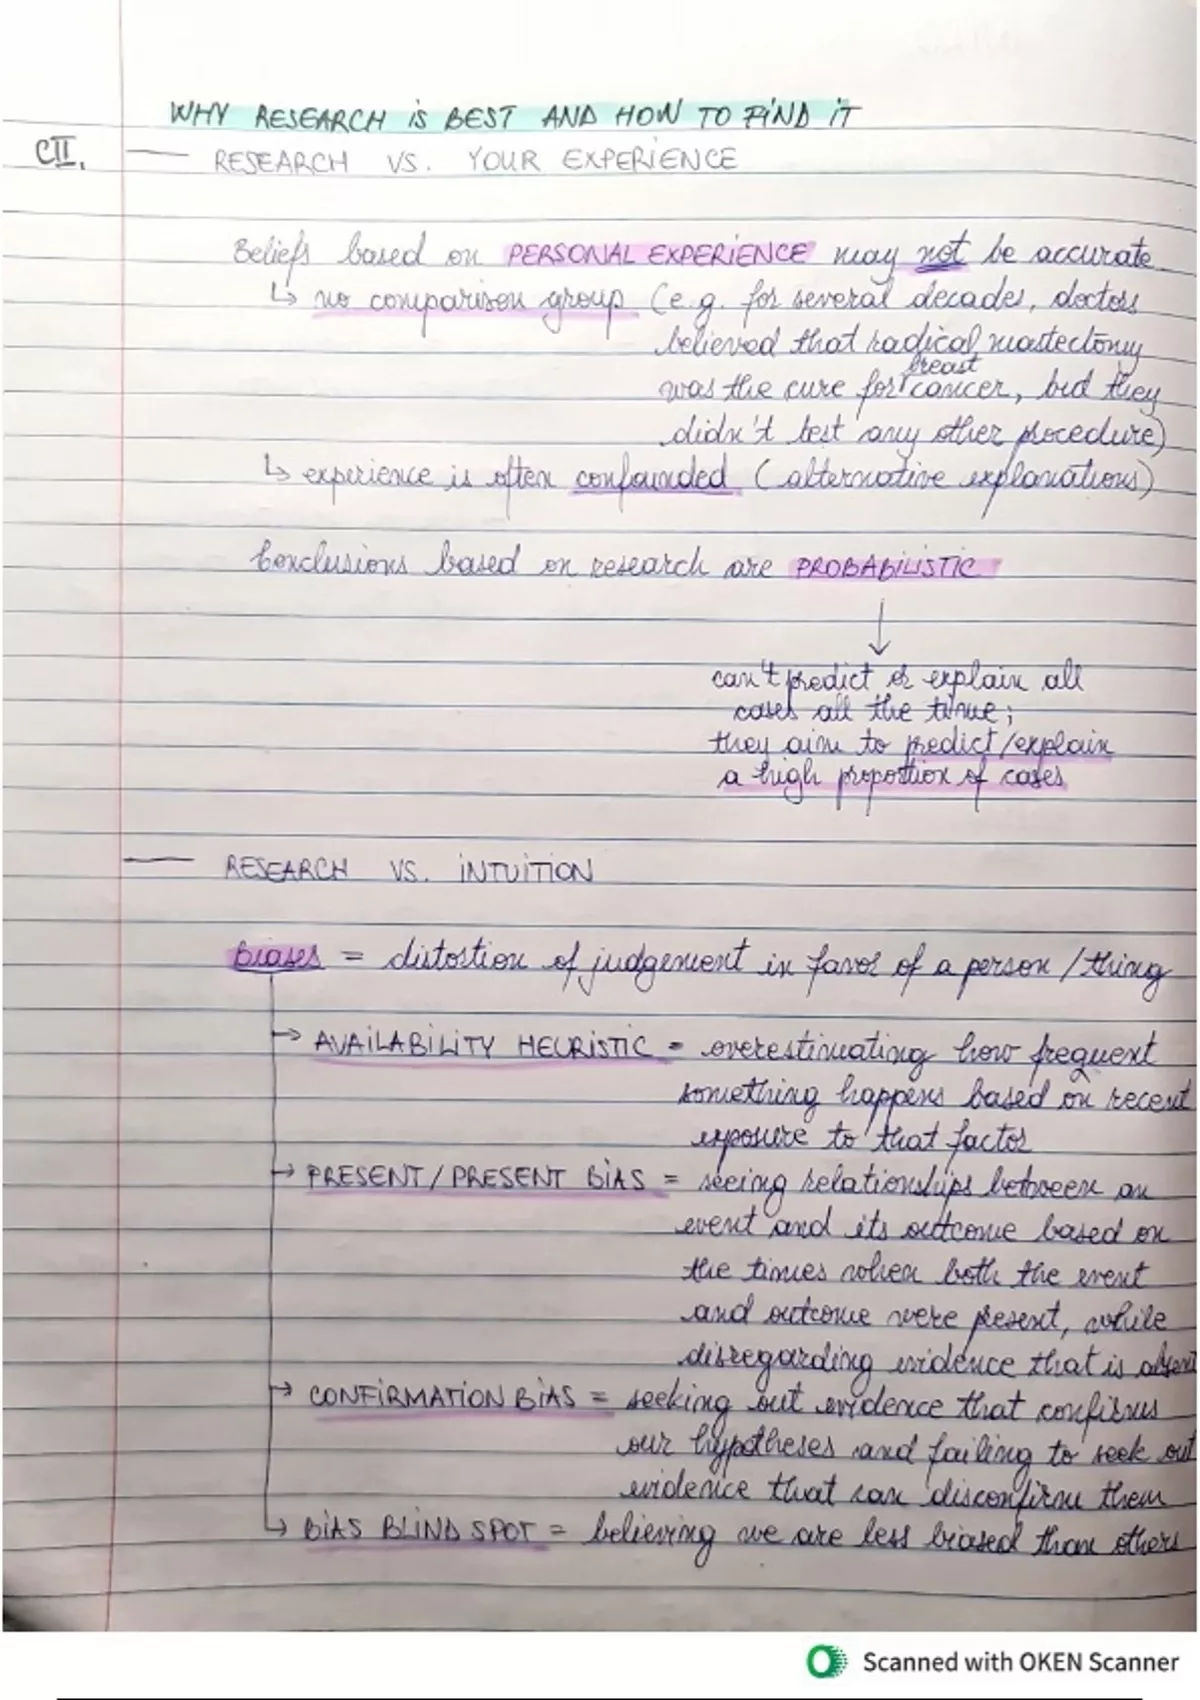 WHY RESEARCH iS BEST AND HOW TO FiND iT
CII. — RESEARCH VS. YOUR EXPERiENCE
Beliefs based on PERSONAL EXPERiENCE may not be accurate
↳ no comparison group (e.g. for several decades, doctors
believed that radical mastectomy
breast
was the cure for cancer, but they
didn't test any other procedure)
↳ experience is often confounded (alternative explanations)
Conclusions based on research are PROBABiLiSTiC
↓
can't predict or explain all
cases all the time;
they aim to predict/explain
a high proportion of cases
— RESEARCH VS. iNTUiTiON
Biases = distortion of judgement in favor of a person / thing
→ AVAiLABiLiTY HEURiSTiC = overestimating how frequent
something happens based on recent
exposure to that factor
→ PRESENT/PRESENT BiAS = seeing relationships between an
event and its outcome based on
the times when both the event
and outcome were present, while
disregarding evidence that is absent
→ CONFiRMATiON BiAS = seeking out evidence that confirms
our hypotheses and failing to seek out
evidence that can disconfirm them
↳ BiAS BLiND SPOT = believing we are less biased than others
Scanned with OKEN Scanner